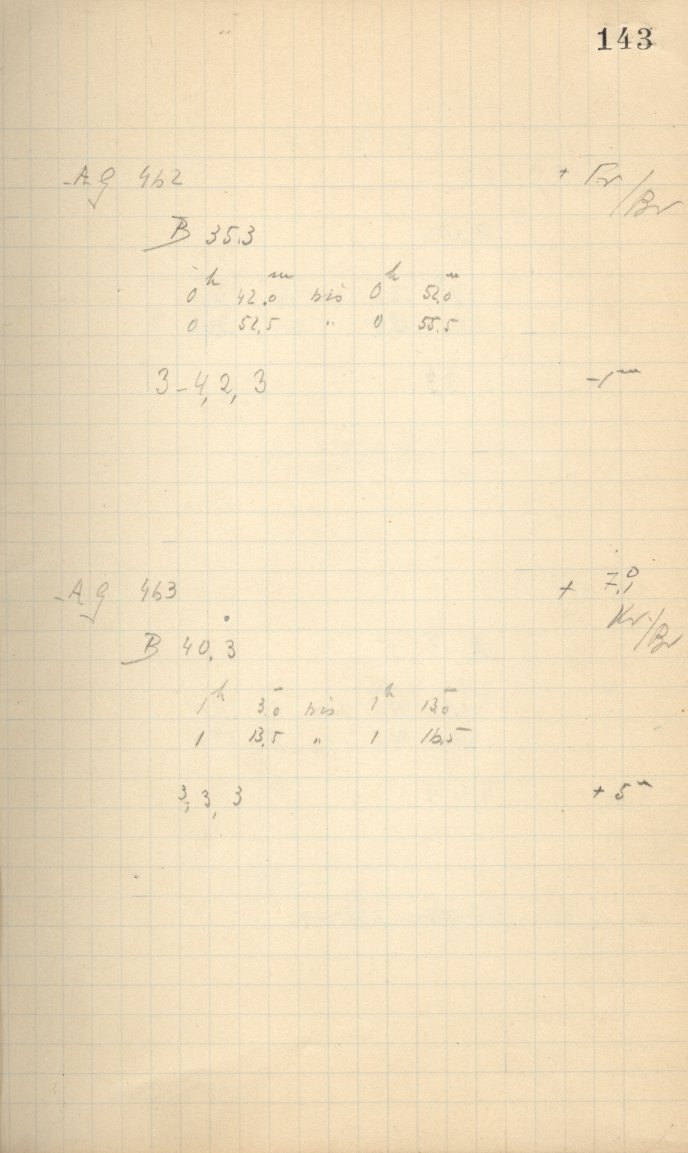 143
Ag 462 +
Br
B 35.3
0h 42.0m bis 0h 52.0m
0 52.5 " 0 55.5
3-4, 2, 3 -1m
Ag 463 + 7,0
Kr/Br
B 40.3
1h 3.0m bis 1h 13.0m
1 13.5 " 1 16.5
3, 3, 3 + 5m